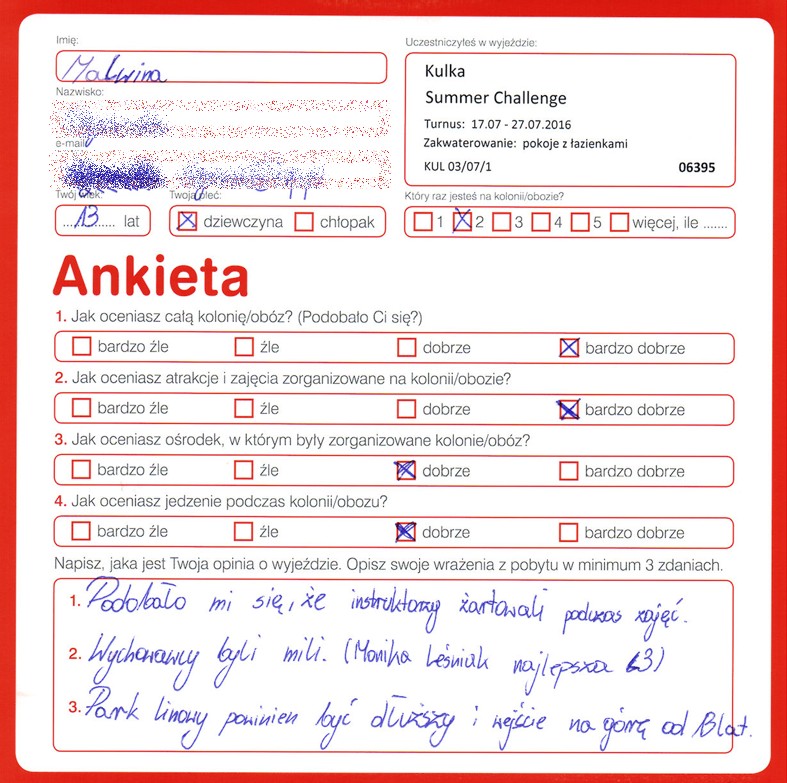 Imię:
Malwina
Uczestniczyłeś w wyjeździe:
Kulka
Summer Challenge
Turnus: 17.07 - 27.07.2016
Zakwaterowanie: pokoje z łazienkami
KUL 03/07/1 06395
Nazwisko:
e-mail:
Twój wiek:
...13...... lat
Twoja płeć:
dziewczyna chłopak
Który raz jesteś na kolonii/obozie?
1 2 3 4 5 więcej, ile .......
Ankieta
1. Jak oceniasz całą kolonię/obóz? (Podobało Ci się?)
bardzo źle źle dobrze bardzo dobrze
2. Jak oceniasz atrakcje i zajęcia zorganizowane na kolonii/obozie?
bardzo źle źle dobrze bardzo dobrze
3. Jak oceniasz ośrodek, w którym były zorganizowane kolonie/obóz?
bardzo źle źle dobrze bardzo dobrze
4. Jak oceniasz jedzenie podczas kolonii/obozu?
bardzo źle źle dobrze bardzo dobrze
Napisz, jaka jest Twoja opinia o wyjeździe. Opisz swoje wrażenia z pobytu w minimum 3 zdaniach.
1. Podobało mi się, że instruktorzy żartowali podczas zajęć.
2. Wychowawcy byli mili. (Monika Leśniak najlepsza <3)
3. Park linowy powinien być dłuższy i wejście na górę od 13 lat.